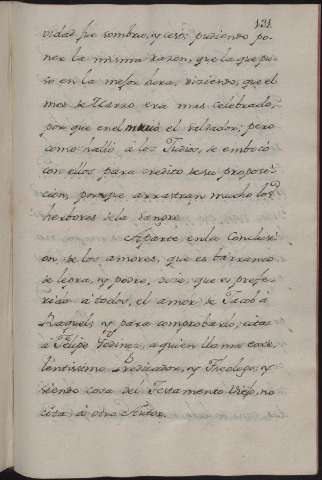 121.
vidad fue sombra, y cesó; pudiendo po-
ner la misma razon, que la que pu-
so en la mejor hora, diciendo, que el
mes de Marzo era mas celebrado,
por que en el murió el Salvador; pero
como halló à los Judios, se embocó
con ellos para credito de su proposi-
cion, porque arrastran mucho los
herbores de la sangre.
Aparte en la Conclusi-
on, de los amores, que es barranco
de lepra, y podre, dice, que es prefe-
rido à todos, el amor de Jacob à
Raquel; y para comprobarlo, cita
à Felipe Godinez, a quien llama exce-
lentissimo Predicador, y Theologo; y
siendo cosa del Testamento Viejo, no
cita à otro Autor.